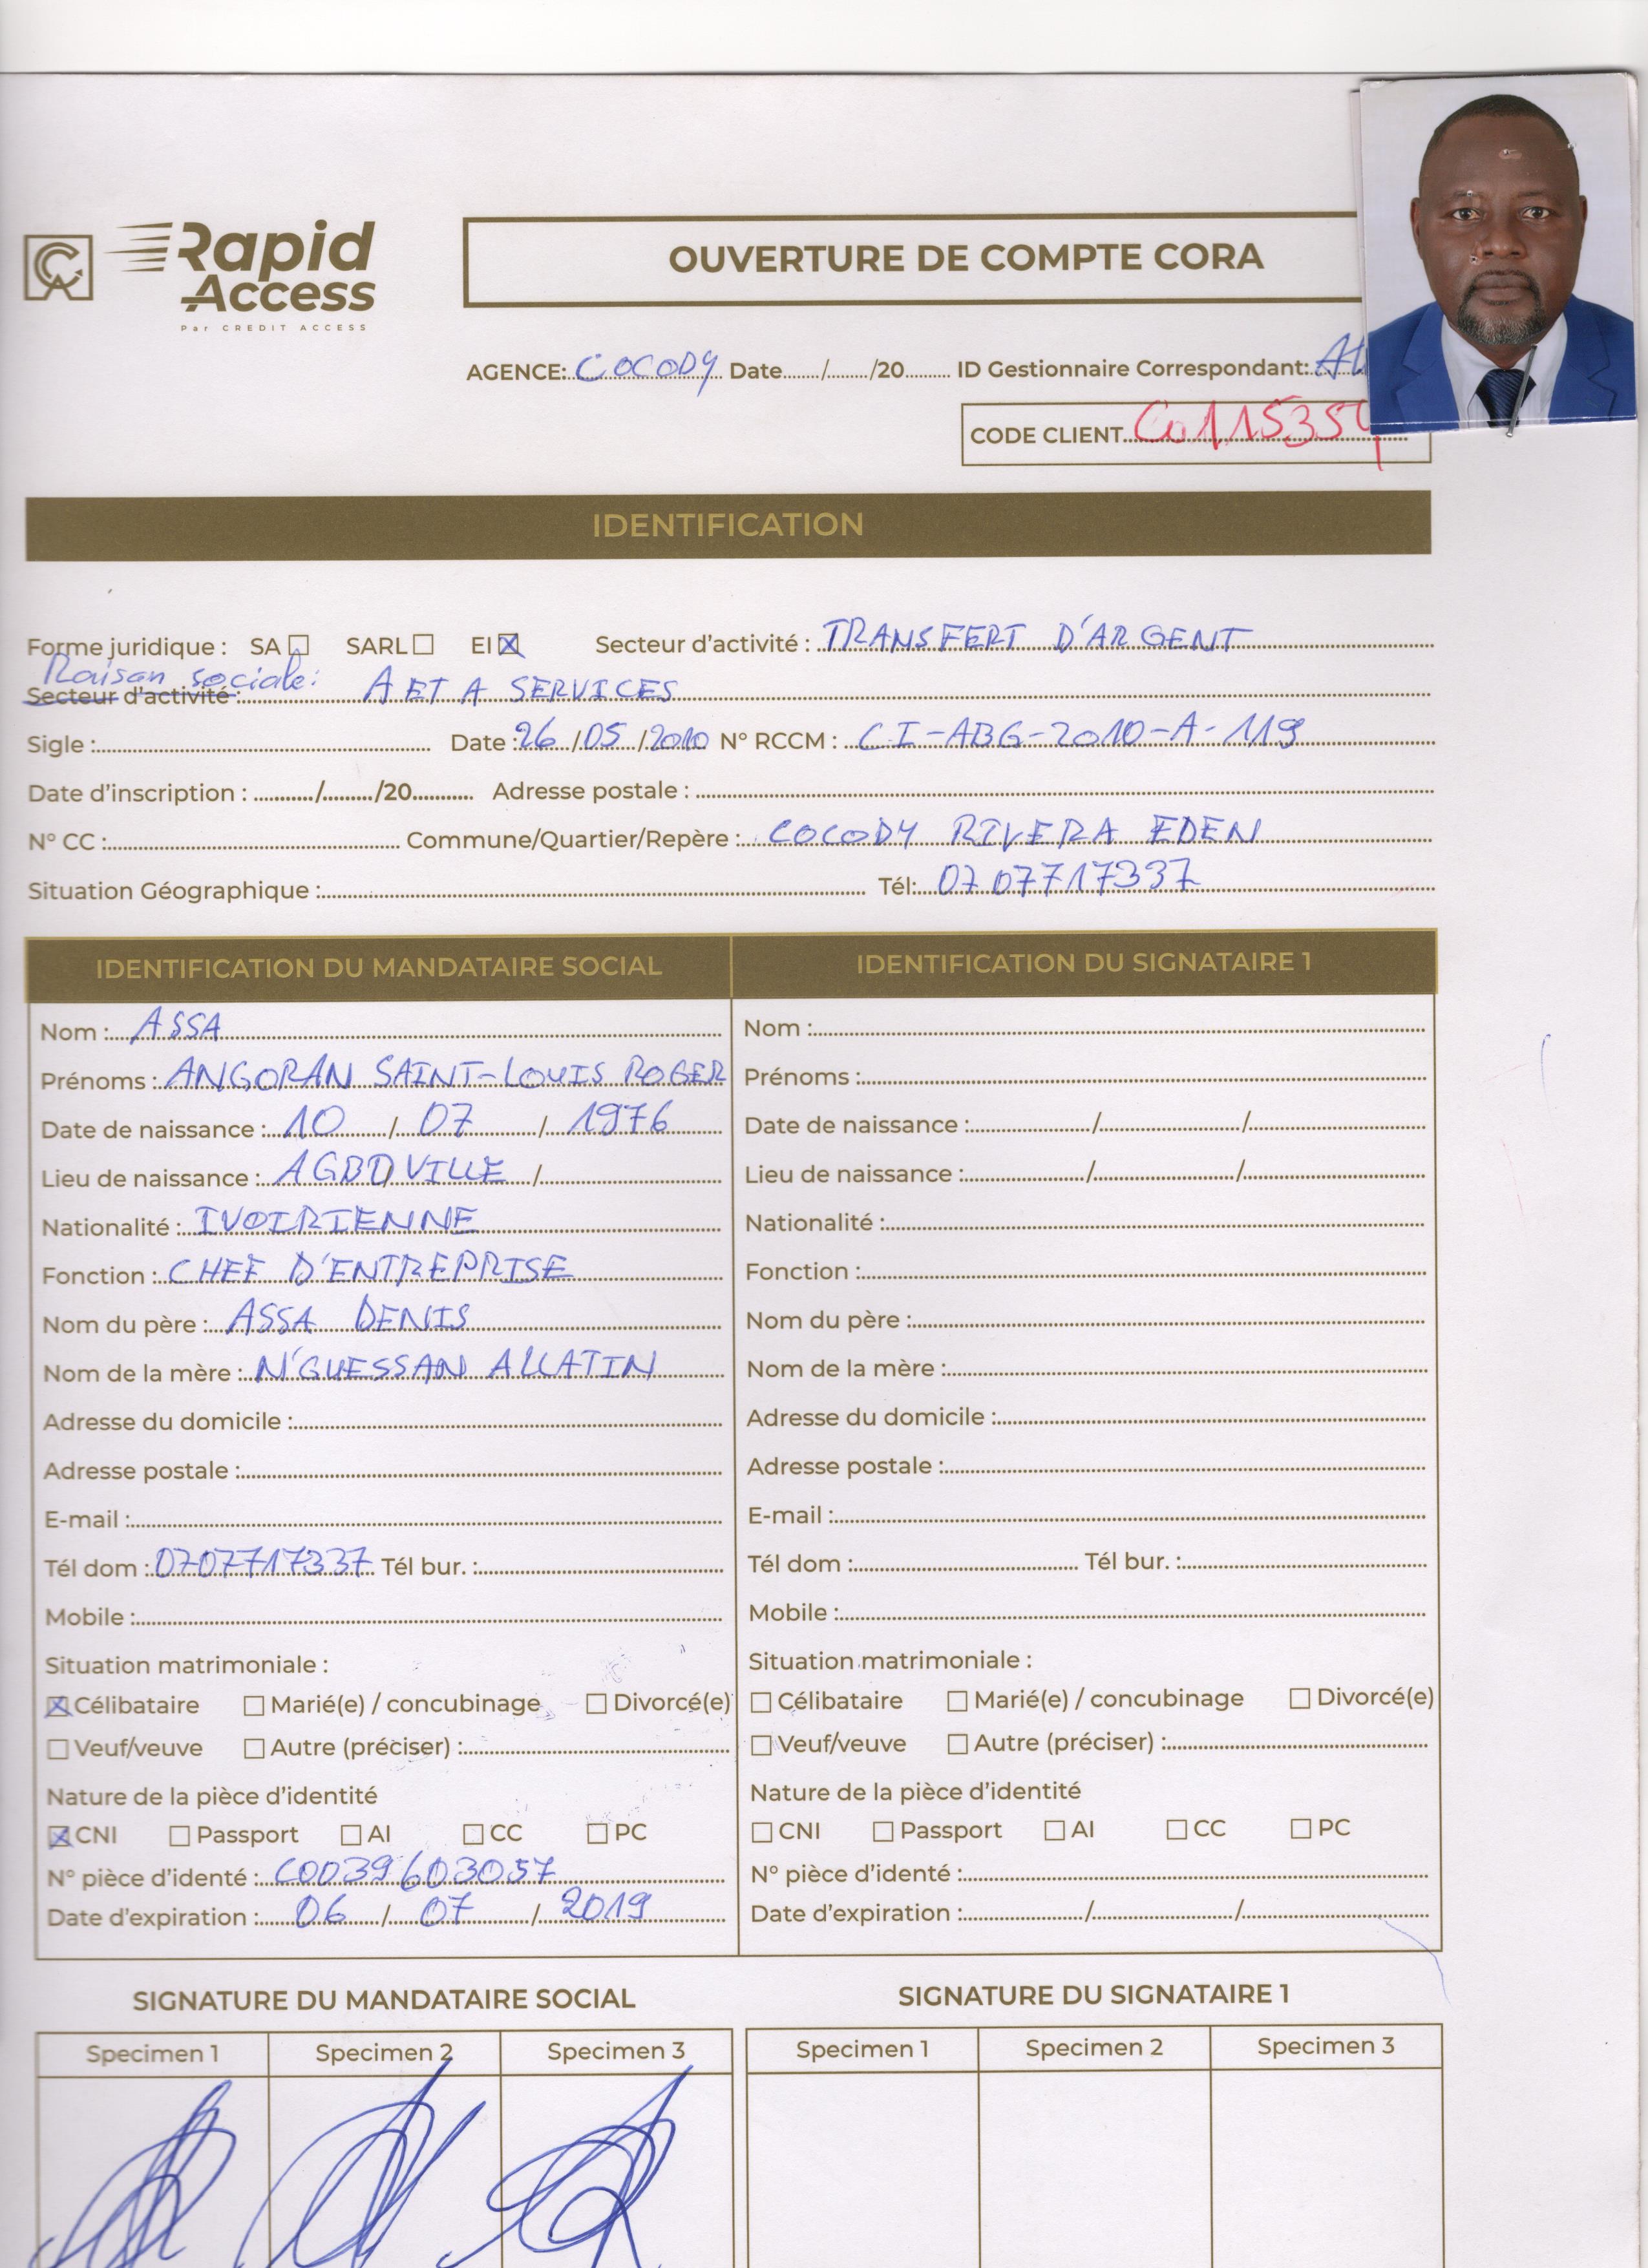 Rapid
Access
Par CREDIT ACCESS
OUVERTURE DE COMPTE CORA
AGENCE: COCODY Date....../....../20...... ID Gestionnaire Correspondant:
CODE CLIENT
IDENTIFICATION
Forme juridique : SA ☐ SARL ☐ EI ☒ Secteur d'activité : TRANSFERT D'ARGENT
Raison sociale:
Secteur d'activité : A ET A SERVICES
Sigle : Date : 26 /05 /2010 N° RCCM : CI-ABG-2010-A-119
Date d'inscription : ....../....../20...... Adresse postale :
N° CC : Commune/Quartier/Repère : COCODY RIVERA EDEN
Situation Géographique : Tél: 07 07717337
IDENTIFICATION DU MANDATAIRE SOCIAL IDENTIFICATION DU SIGNATAIRE 1
Nom : ASSA Nom :
Prénoms : ANGORAN SAINT-LOUIS ROGER Prénoms :
Date de naissance : 10 / 07 / 1976 Date de naissance : / /
Lieu de naissance : AGBOVILLE / Lieu de naissance : / /
Nationalité : IVOIRIENNE Nationalité :
Fonction : CHEF D'ENTREPRISE Fonction :
Nom du père : ASSA DENIS Nom du père :
Nom de la mère : N'GUESSAN ALLATIN Nom de la mère :
Adresse du domicile : Adresse du domicile :
Adresse postale : Adresse postale :
E-mail : E-mail :
Tél dom : 0707717337 Tél bur. : Tél dom : Tél bur. :
Mobile : Mobile :
Situation matrimoniale : Situation matrimoniale :
☒ Célibataire ☐ Marié(e) / concubinage ☐ Divorcé(e) ☐ Célibataire ☐ Marié(e) / concubinage ☐ Divorcé(e)
☐ Veuf/veuve ☐ Autre (préciser) : ☐ Veuf/veuve ☐ Autre (préciser) :
Nature de la pièce d'identité Nature de la pièce d'identité
☒ CNI ☐ Passport ☐ AI ☐ CC ☐ PC ☐ CNI ☐ Passport ☐ AI ☐ CC ☐ PC
N° pièce d'identé : C0039603057 N° pièce d'identé :
Date d'expiration : 06 / 07 / 2019 Date d'expiration : / /
SIGNATURE DU MANDATAIRE SOCIAL SIGNATURE DU SIGNATAIRE 1
Specimen 1 Specimen 2 Specimen 3 Specimen 1 Specimen 2 Specimen 3